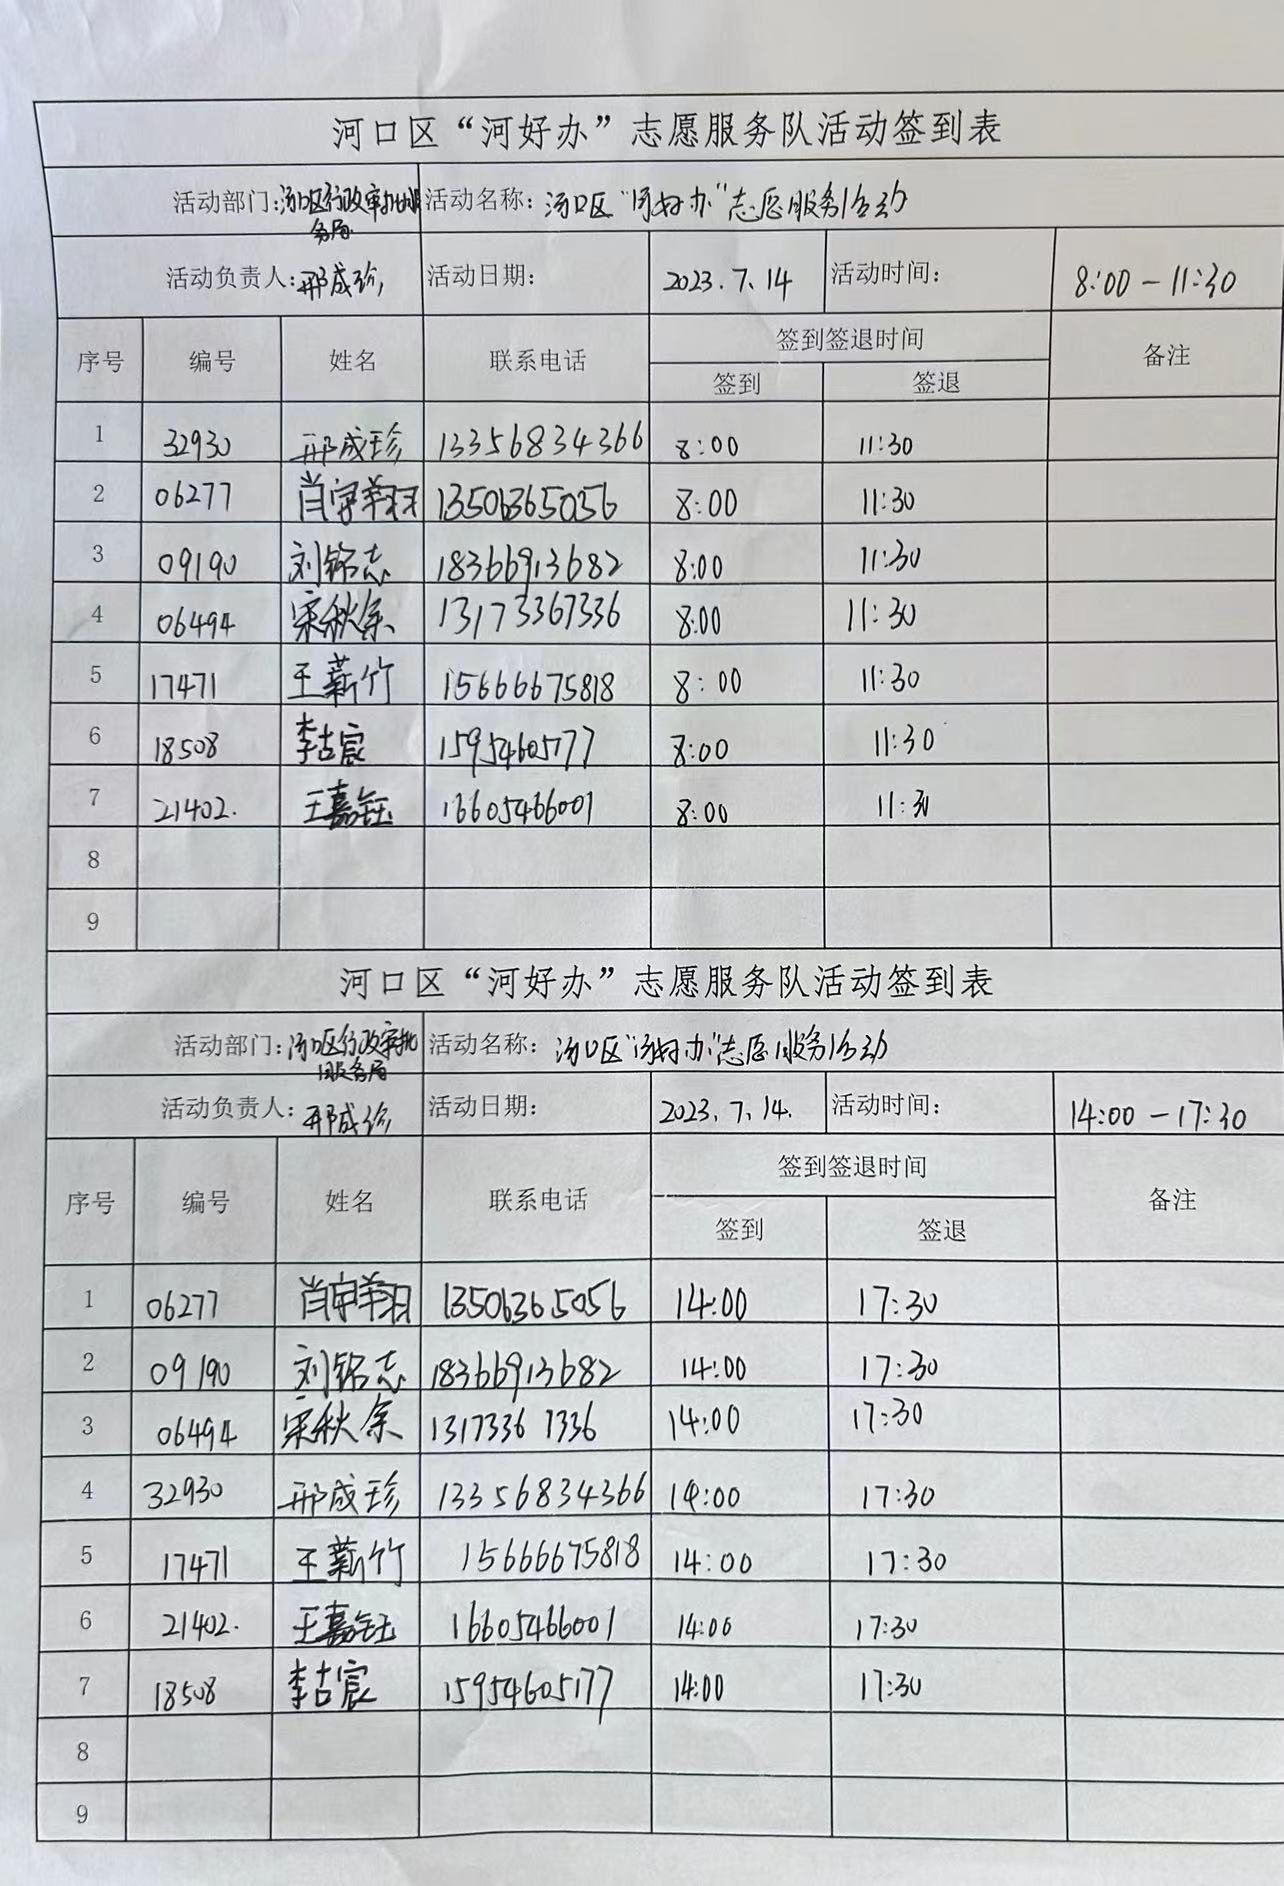 河口区“河好办”志愿服务队活动签到表
活动部门：河口区行政审批服务局 活动名称：河口区“河好办”志愿服务活动
活动负责人：邢成珍 活动日期： 2023.7.14 活动时间： 8:00－11:30
序号 编号 姓名 联系电话 签到签退时间 备注
签到 签退
1 32930 邢成珍 13356834366 8:00 11:30
2 06277 肖宇翔 13506365056 8:00 11:30
3 09190 刘铭志 18366913682 8:00 11:30
4 06494 宋秋余 13173367336 8:00 11:30
5 17471 王薪竹 15666675818 8:00 11:30
6 18508 李古宸 15954605177 8:00 11:30
7 21402. 王嘉钰 16605466001 8:00 11:30
8
9
河口区“河好办”志愿服务队活动签到表
活动部门：河口区行政审批服务局 活动名称：河口区“河好办”志愿服务活动
活动负责人：邢成珍 活动日期： 2023.7.14. 活动时间： 14:00－17:30
序号 编号 姓名 联系电话 签到签退时间 备注
签到 签退
1 06277 肖宇翔 13506365056 14:00 17:30
2 09190 刘铭志 18366913682 14:00 17:30
3 06494 宋秋余 1317336 7336 14:00 17:30
4 32930 邢成珍 13356834366 14:00 17:30
5 17471 王薪竹 15666675818 14:00 17:30
6 21402. 王嘉钰 16605466001 14:00 17:30
7 18508 李古宸 15954605177 14:00 17:30
8
9